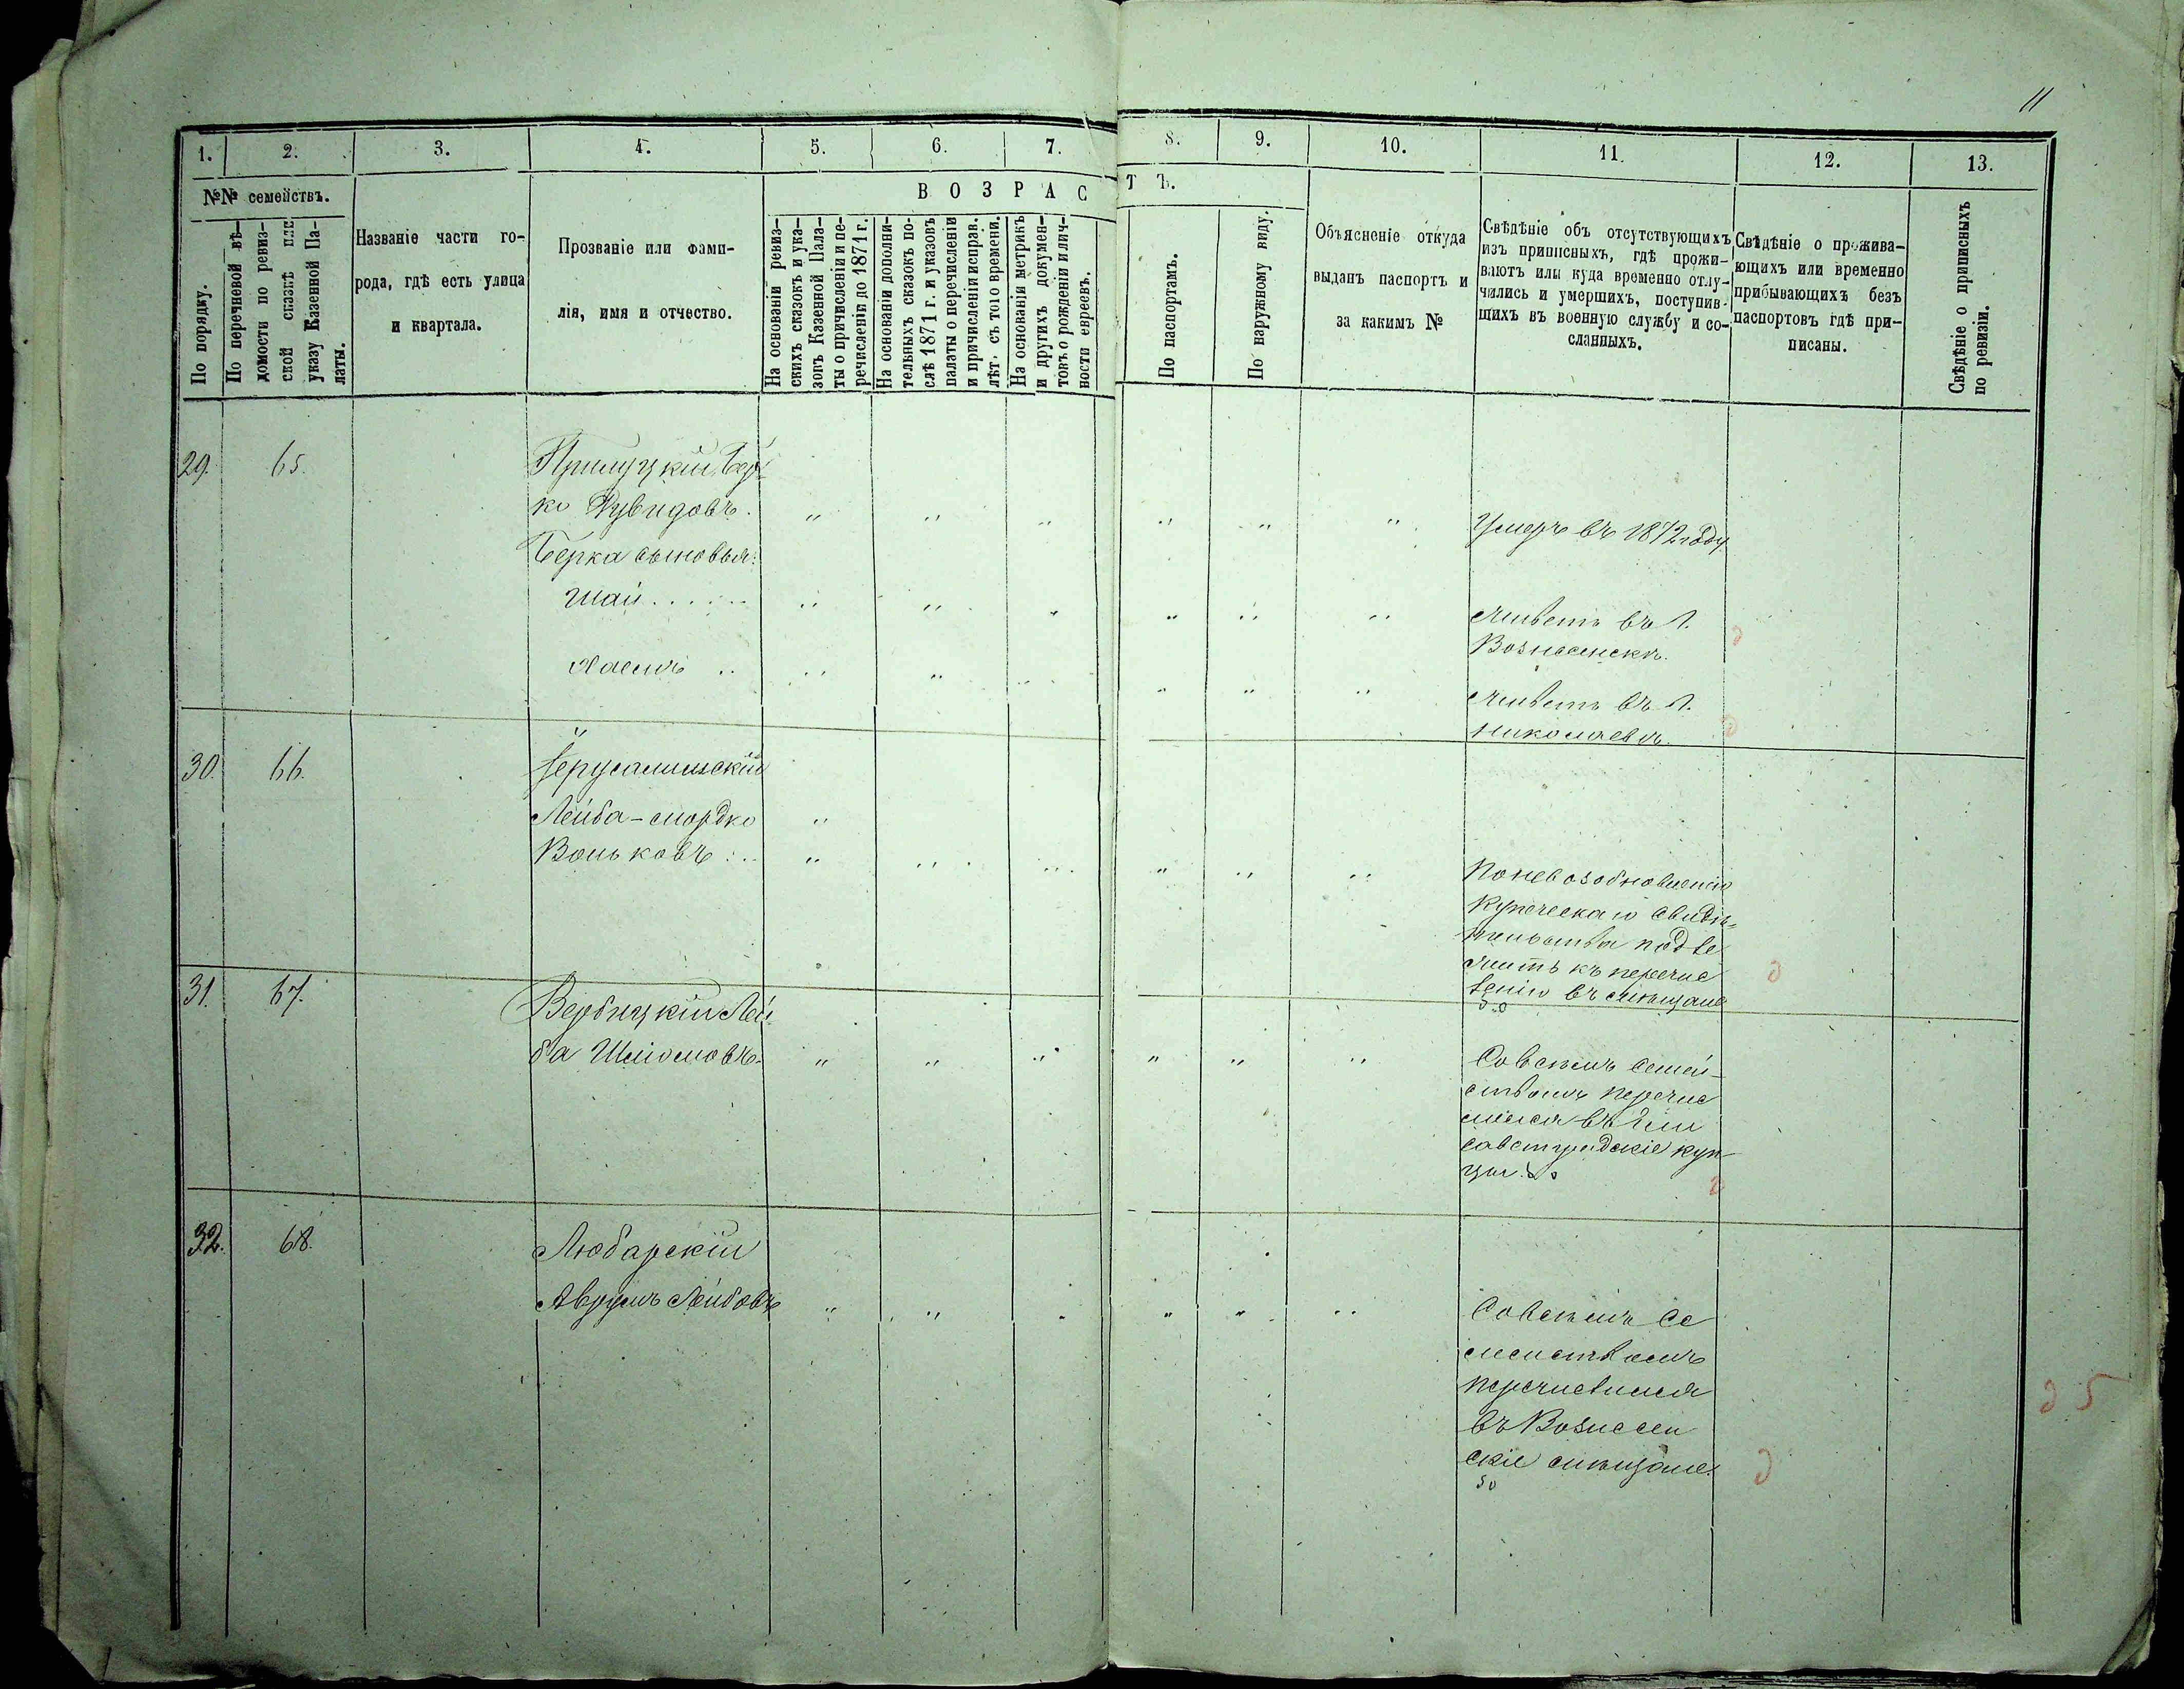 11
1. 2. 3. 4. 5. 6. 7. 8. 9. 10. 11. 12. 13.
№№ семействъ.
ВОЗРАСТЪ.
По порядку.
По перечневой вѣ-
домости по ревиз-
ской сказкѣ или
указу Казенной Па-
латы.
Названіе части го-
рода, гдѣ есть улица
и квартала.
Прозваніе или фами-
лія, имя и отчество.
На основаніи ревиз-
скихъ сказокъ и ука-
зовъ Казенной Пала-
ты о причисленіи и пе-
речисленіи до 1871 г.
На основаніи дополни-
тельныхъ сказокъ по-
слѣ 1871 г. и указовъ
палаты о перечисленіи
и причисленіи исправ.
лѣт. съ того времени.
На основаніи метрикъ
и другихъ докумен-
товъ о рожденіи и лич-
ности евреевъ.
По паспортамъ.
По наружному виду.
Объясненіе откуда
выданъ паспортъ и
за какимъ №
Свѣдѣніе объ отсутствующихъ
изъ приписныхъ, гдѣ прожи-
ваютъ или куда временно отлу-
чились и умершихъ, поступив-
щихъ въ военную службу и со-
сланныхъ.
Свѣдѣніе о прожива-
ющихъ или временно
прибывающихъ безъ
паспортовъ гдѣ при-
писаны.
Свѣдѣніе о приписныхъ
по ревизіи.
29. 65. Прилуцкій Бер-
ко Дувидовъ. " " " " " " Умеръ въ 1872 году
Берка сыновья:
Шай . . . . . " " " " " " Живетъ въ г.
Вознесенскѣ.
Хаемъ .. " " " " " " Живетъ въ г.
Николаевѣ.
30. 66. Іерусалимскій
Лейба-Мордко "
Вольковъ ... " " " " " " По невозобновленію
купеческаго свидѣ-
тельства подле
житъ къ перечис
ленію въ мѣщане
31. 67. Вербицкій Лей-
ба Шліомовъ. " " " " " " Со всѣмъ семей-
ствомъ перечис
лился въ Ели
саветградскіе куп-
цы.
32. 68. Любарскій
Аврумъ Лейбовъ " " " " " " Со всѣмъ се
мействомъ
перечислился
въ Вознесен
скіе мѣщане.